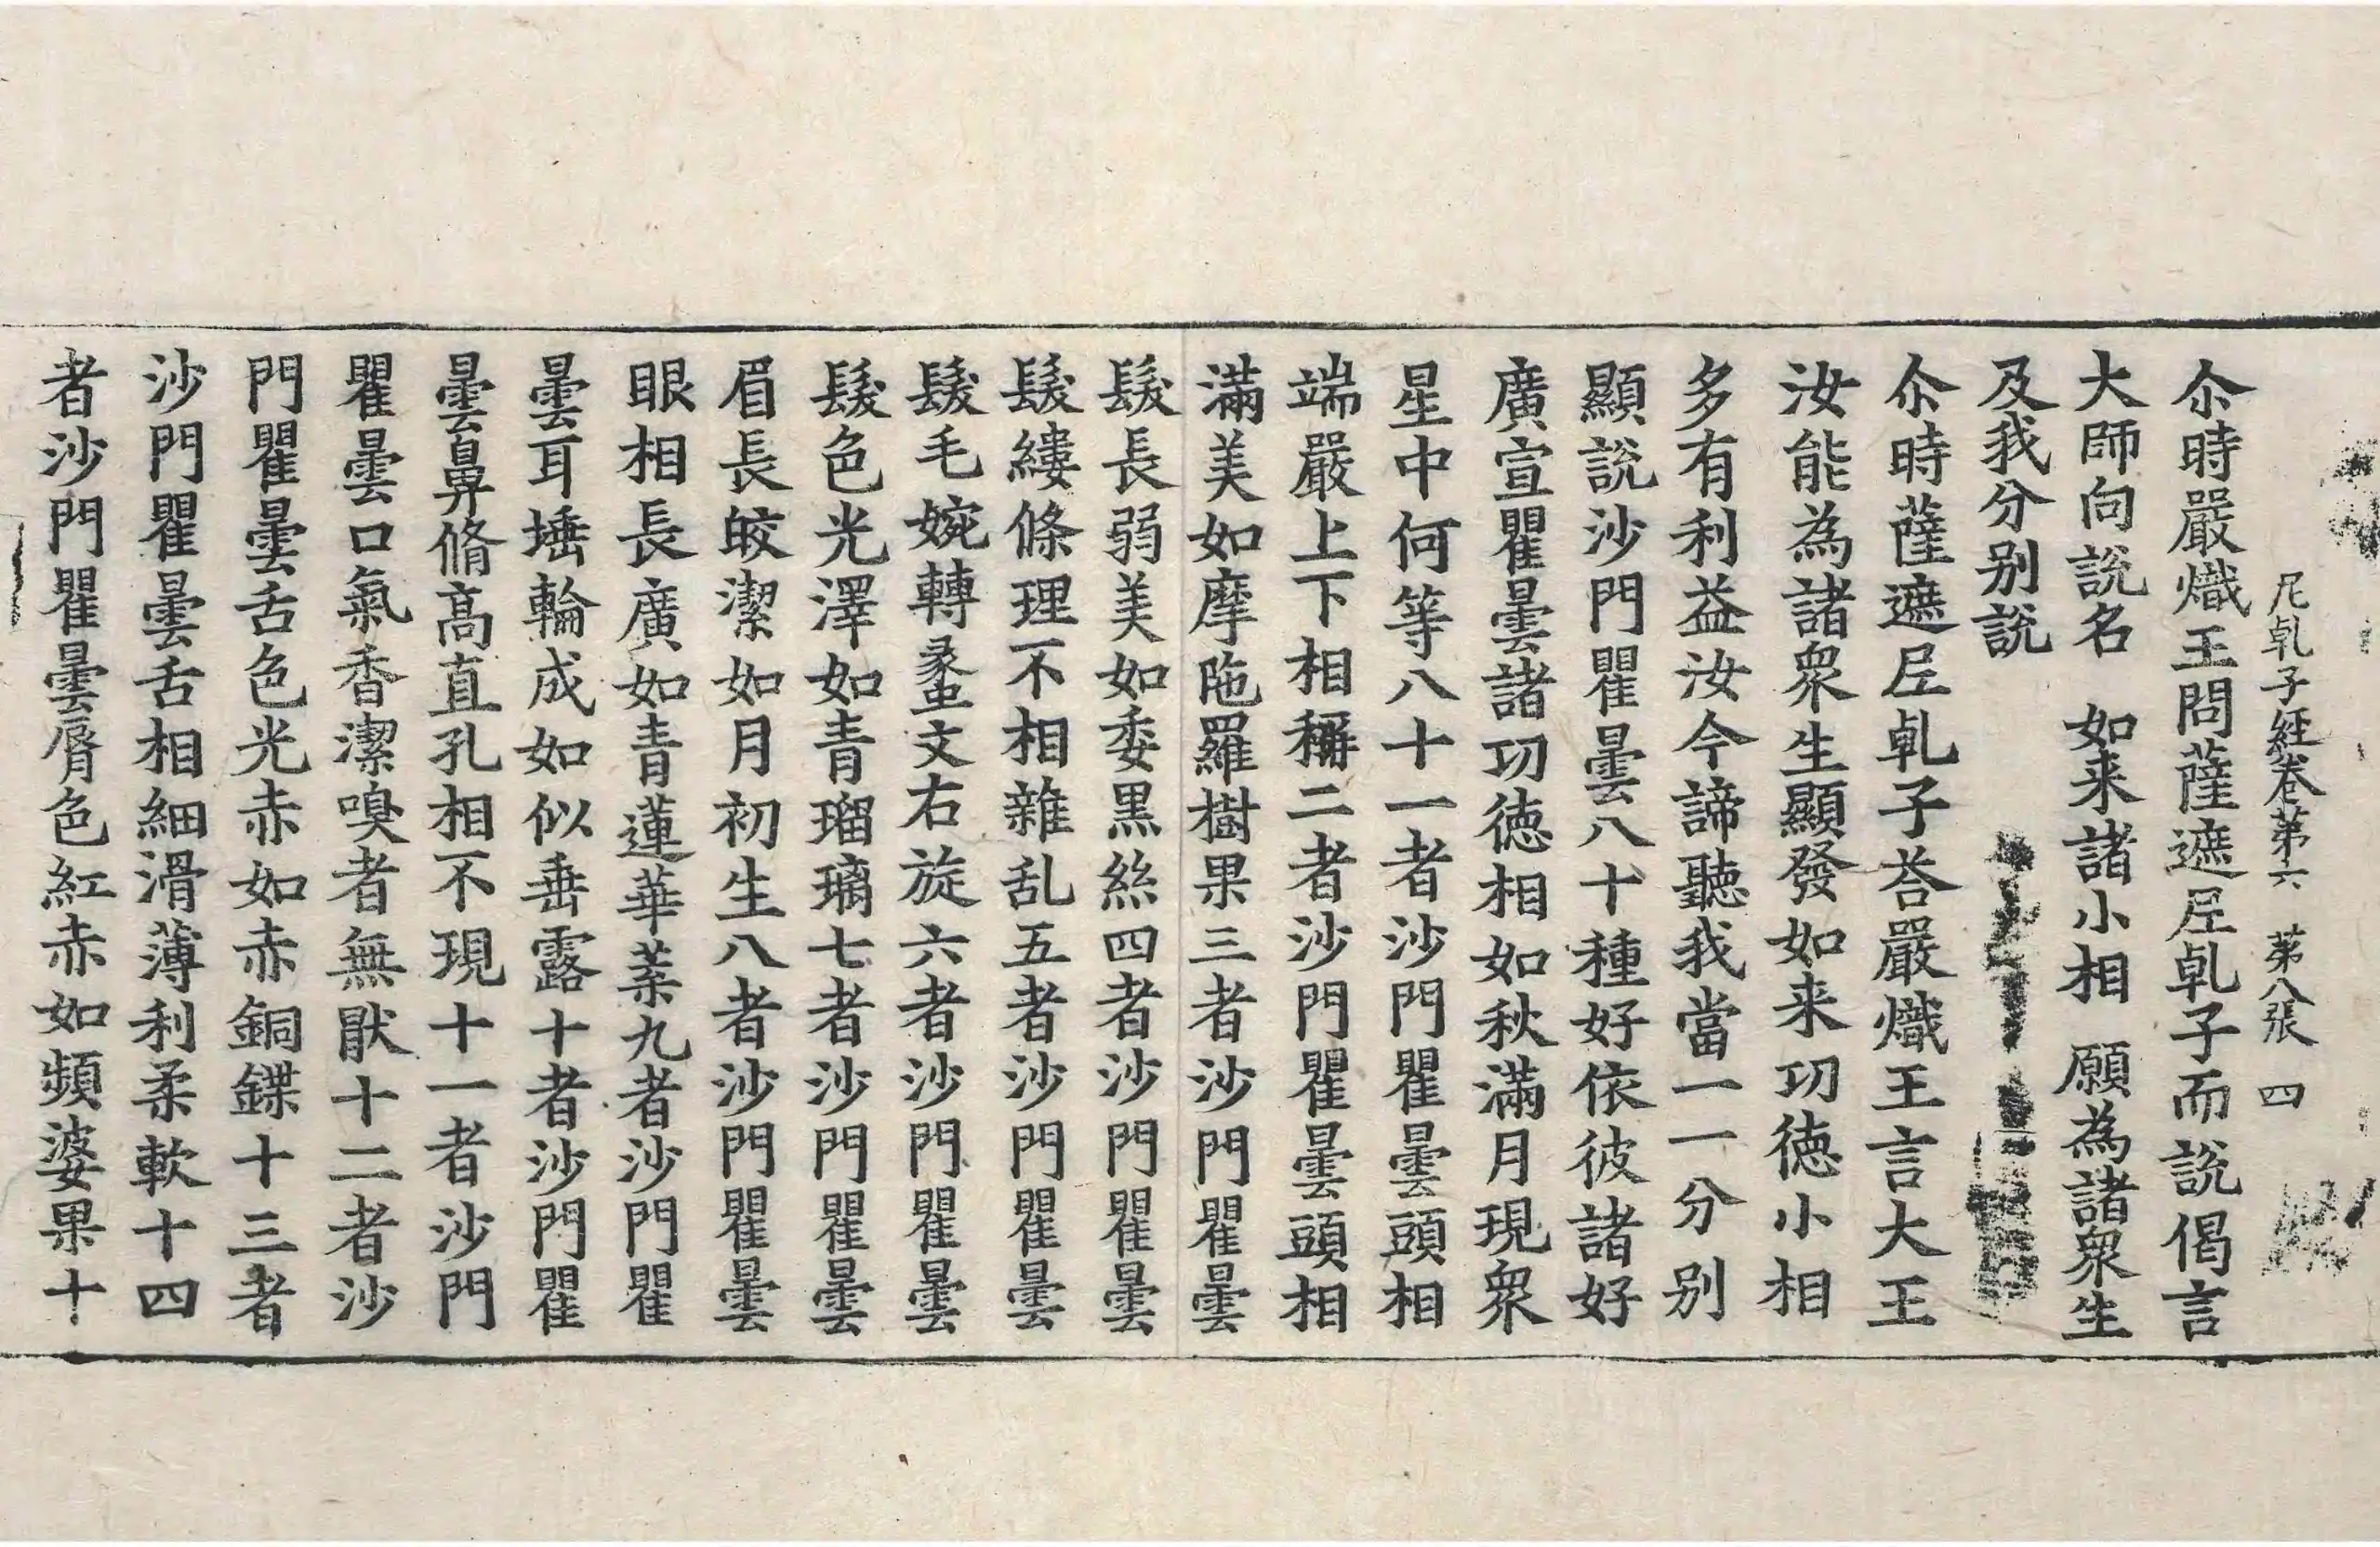 尼乹子經卷第六　第八張　四
尒時嚴熾王問薩遮𡰱乹子而說偈言
大師向說名　如来諸小相　願為諸衆生
及我分別說
尒時薩遮𡰱乹子荅嚴熾王言大王
汝能為諸衆生顯發如来功徳小相
多有利益汝今諦聽我當一一分別
顯說沙門瞿曇八十種好依彼諸好
廣宣瞿曇諸功徳相如秋滿月現衆
星中何等八十一者沙門瞿曇頭相
端嚴上下相稱二者沙門瞿曇頭相
滿美如摩陁羅樹果三者沙門瞿曇
髮長弱美如委黑絲四者沙門瞿曇
髮縷條理不相雜乱五者沙門瞿曇
髮毛婉轉蠡文右旋六者沙門瞿曇
髮色光澤如青瑠璃七者沙門瞿曇
眉長皎潔如月初生八者沙門瞿曇
眼相長廣如青蓮華葉九者沙門瞿
曇耳埵輪成如似垂露十者沙門瞿
曇鼻脩高直孔相不現十一者沙門
瞿曇口氣香潔嗅者無猒十二者沙
門瞿曇舌色光赤如赤銅鍱十三者
沙門瞿曇舌相細滑薄利柔軟十四
者沙門瞿曇脣色紅赤如頻婆果十